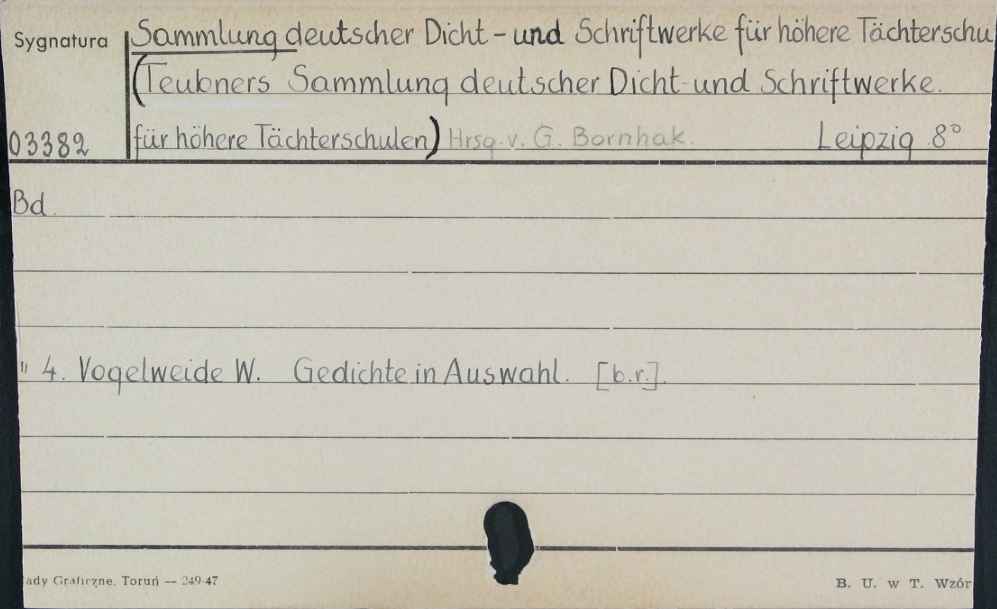 Sygnatura Sammlung deutscher Dicht- und Schriftwerke für höhere Tächterschu
(Teubners Sammlung deutscher Dicht- und Schriftwerke.
03382 für höhere Tächterschulen) Hrsg. v. G. Bornhak. Leipzig 8°
Bd.
" 4. Vogelweide W. Gedichte in Auswahl. [b.r.].
ady Graficzne, Toruń — 249-47 B. U. w T. Wzór